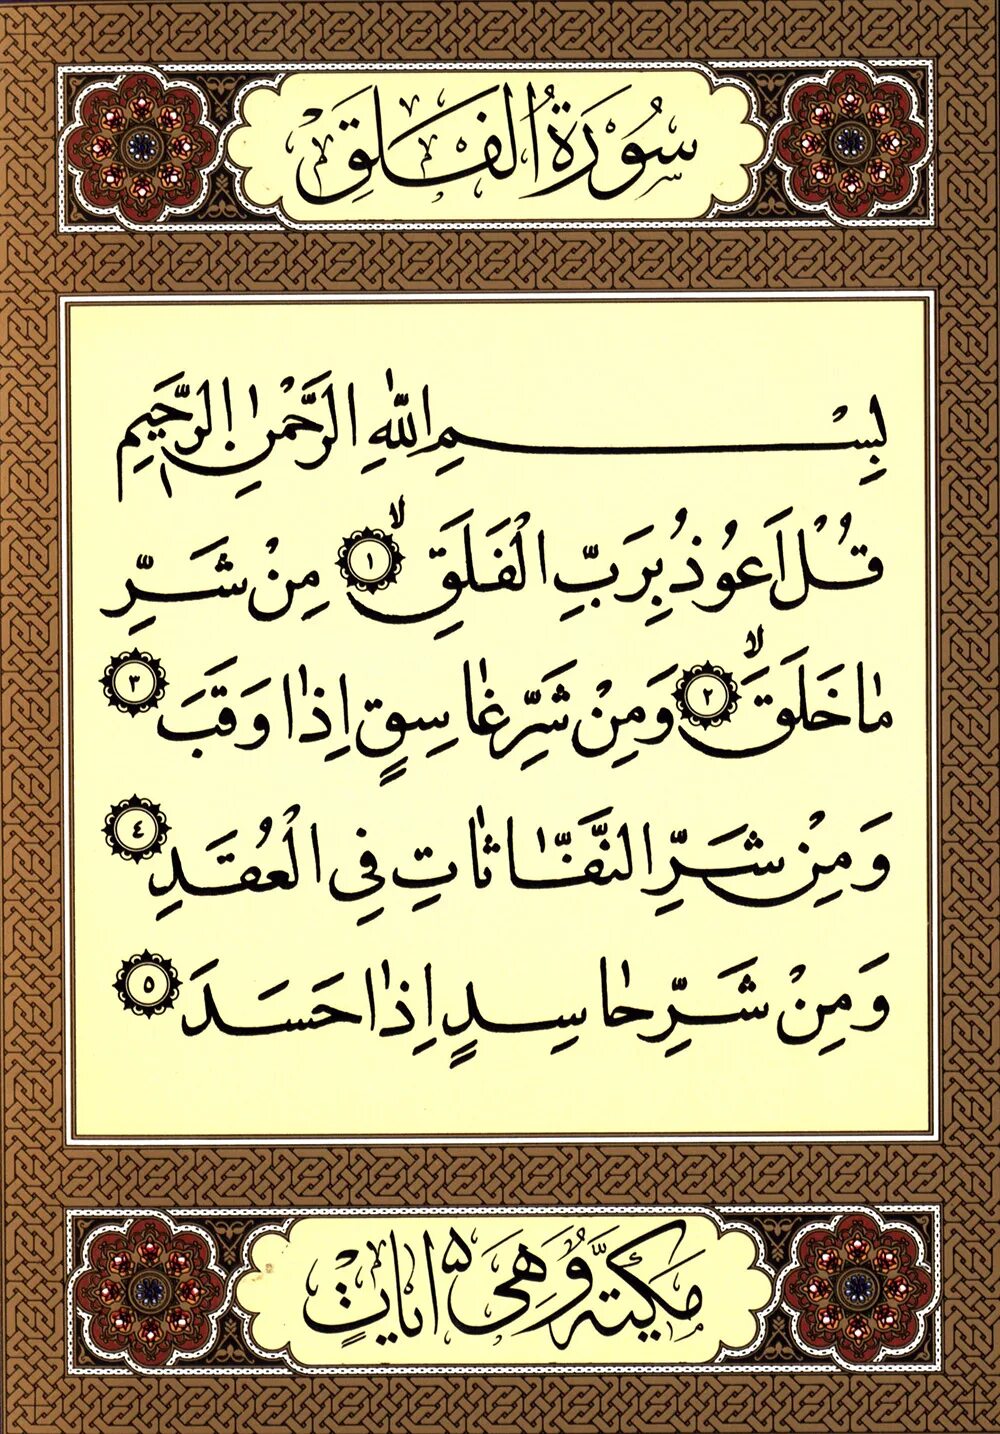 سُورَةُ الْفَلَقِ
بِسْمِ اللّٰهِ الرَّحْمٰنِ الرَّحِيمِ
قُلْ اَعُوذُ بِرَبِّ الْفَلَقِۙ ﴿١﴾ مِنْ شَرِّ
مٰا خَلَقَۙ ﴿٢﴾ وَمِنْ شَرِّ غٰاسِقٍ اِذٰا وَقَبَ ﴿٣﴾
وَمِنْ شَرِّ النَّفّٰاثٰاتِ فِي الْعُقَدِ ﴿٤﴾
وَمِنْ شَرِّ حٰاسِدٍ اِذٰا حَسَدَ ﴿٥﴾
مَكِّيَّةٌ وَهِيَ ٥ اٰيٰاتٍ